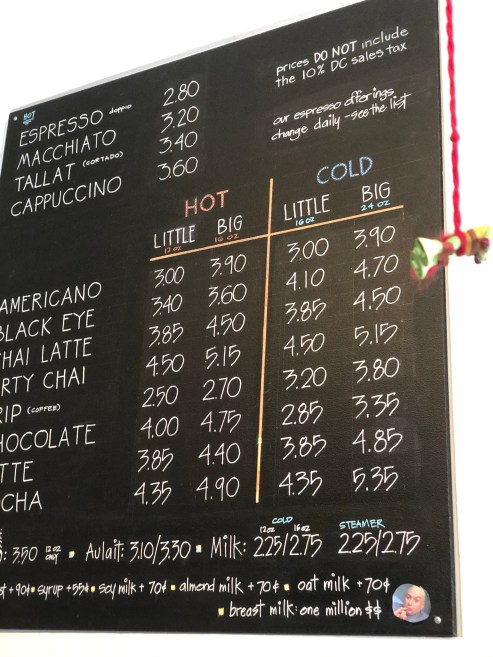 prices DO NOT include
the 10% DC sales tax
our espresso offerings
change daily - see the list
HOT
ESPRESSO doppio 2.80
MACCHIATO 3.20
TALLAT (CORTADO) 3.40
CAPPUCCINO 3.60
HOT COLD
LITTLE BIG LITTLE BIG
12 oz 16 oz 16 oz 24 oz
AMERICANO 3.00 3.90 3.00 3.90
BLACK EYE 3.40 3.60 4.10 4.70
HAI LATTE 3.85 4.50 3.85 4.50
RTY CHAI 4.50 5.15 4.50 5.15
RIP (COFFEE) 2.50 2.70 3.20 3.80
HOCOLATE 4.00 4.75 2.85 3.35
TTE 3.85 4.40 3.85 4.85
CHA 4.35 4.90 4.35 5.35
COLD STEAMER
12oz 16oz
: 3.50 12 oz ONLY ▪ Aulait: 3.10/3.30 ▪ Milk: 2.25/2.75 2.25/2.75
+ 90¢ ▪ syrup + 55¢ ▪ soy milk + 70¢ ▪ almond milk + 70¢ ▪ oat milk + 70¢
▪ breast milk: one million $$